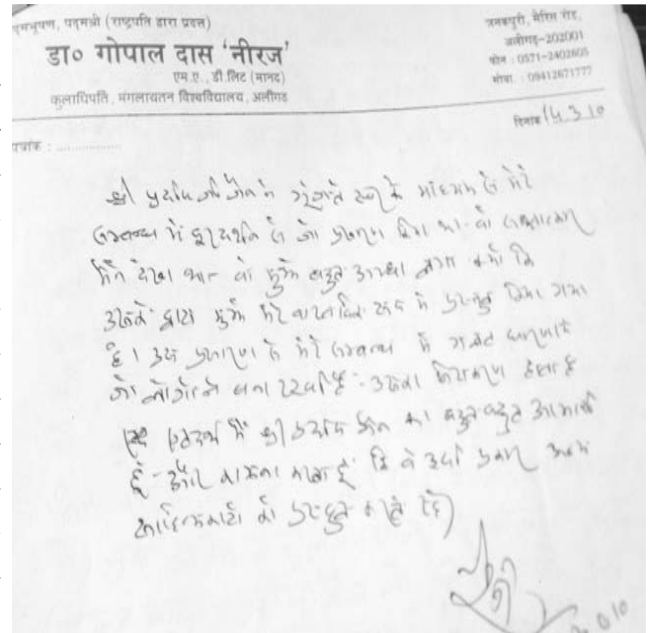 पद्मभूषण, पद्मश्री (राष्ट्रपति द्वारा प्रदत्त)
डा० गोपाल दास 'नीरज'
एम.ए., डी.लिट (मानद)
कुलाधिपति, मंगलायतन विश्वविद्यालय, अलीगढ़
जनकपुरी, मैरिस रोड,
अलीगढ़-202001
फोन : 0571-2402605
मोबा. : 09412671777
दिनांक 14.3.10
पत्रांक : ..................
श्री प्रदीप जी जैन ने गूंजते स्वर के माध्यम से मेरे
सम्बन्ध में दूरदर्शन से जो प्रसारण किया था- वो
मैंने देखा था- वो मुझे बहुत अच्छा लगा क्यों कि
उसके द्वारा मुझे मेरे वास्तविक रूप में प्रस्तुत किया गया
है। उस प्रसारण से मेरे सम्बन्ध में गलत धारणाएं
जो लोगों ने बना रखी हैं- उसका निराकरण होता है
एतदर्थ मैं श्री प्रदीप जैन का बहुत-बहुत आभारी
हूँ- और कामना करता हूँ कि वे इसी प्रकार अन्य
साहित्यकारों को प्रस्तुत करते रहें)